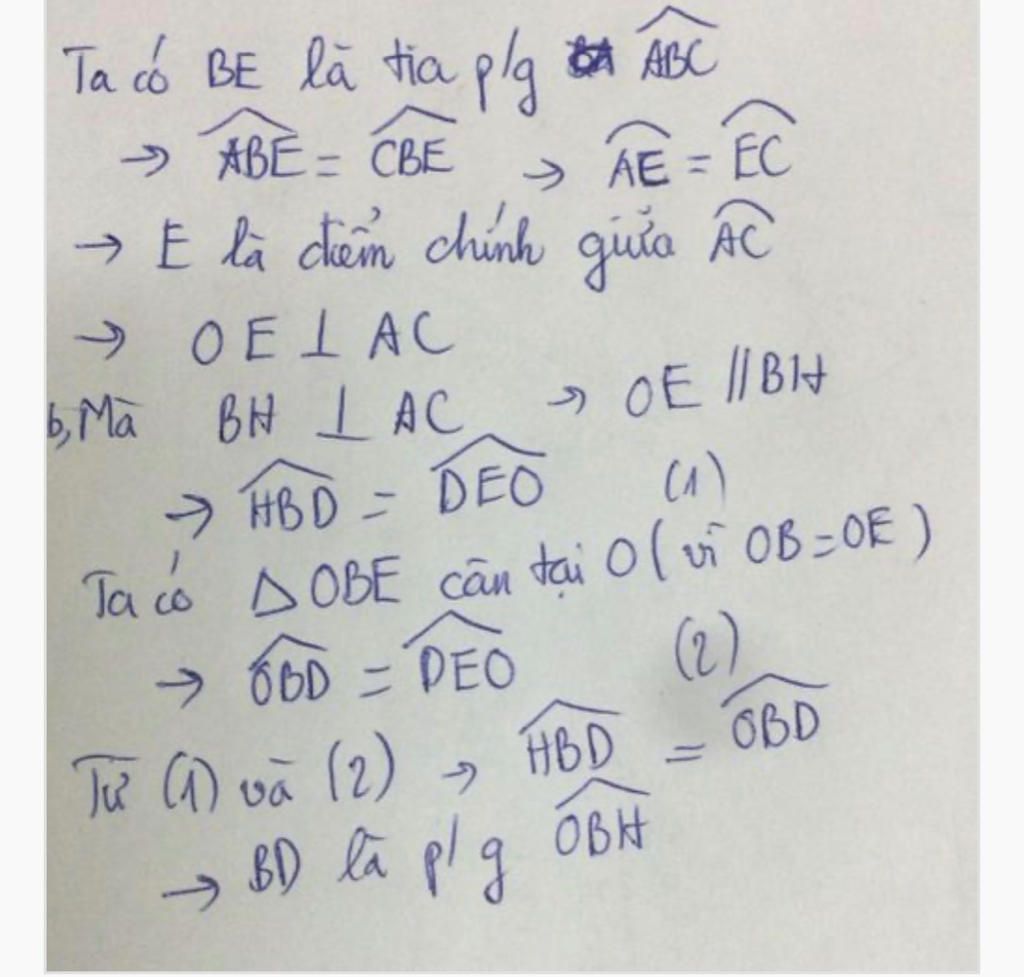 Ta có BE là tia p/g $\widehat{ABC}$
→ $\widehat{ABE}$ = $\widehat{CBE}$ → $\overset{\frown}{AE}$ = $\overset{\frown}{EC}$
→ E là điểm chính giữa $\overset{\frown}{AC}$
→ OE ⊥ AC
b, Mà BH ⊥ AC → OE // BH
→ $\widehat{HBD}$ = $\widehat{DEO}$ (1)
Ta có △OBE cân tại O (vì OB = OE)
→ $\widehat{OBD}$ = $\widehat{DEO}$ (2)
Từ (1) và (2) → $\widehat{HBD}$ = $\widehat{OBD}$
→ BD là p/g $\widehat{OBH}$